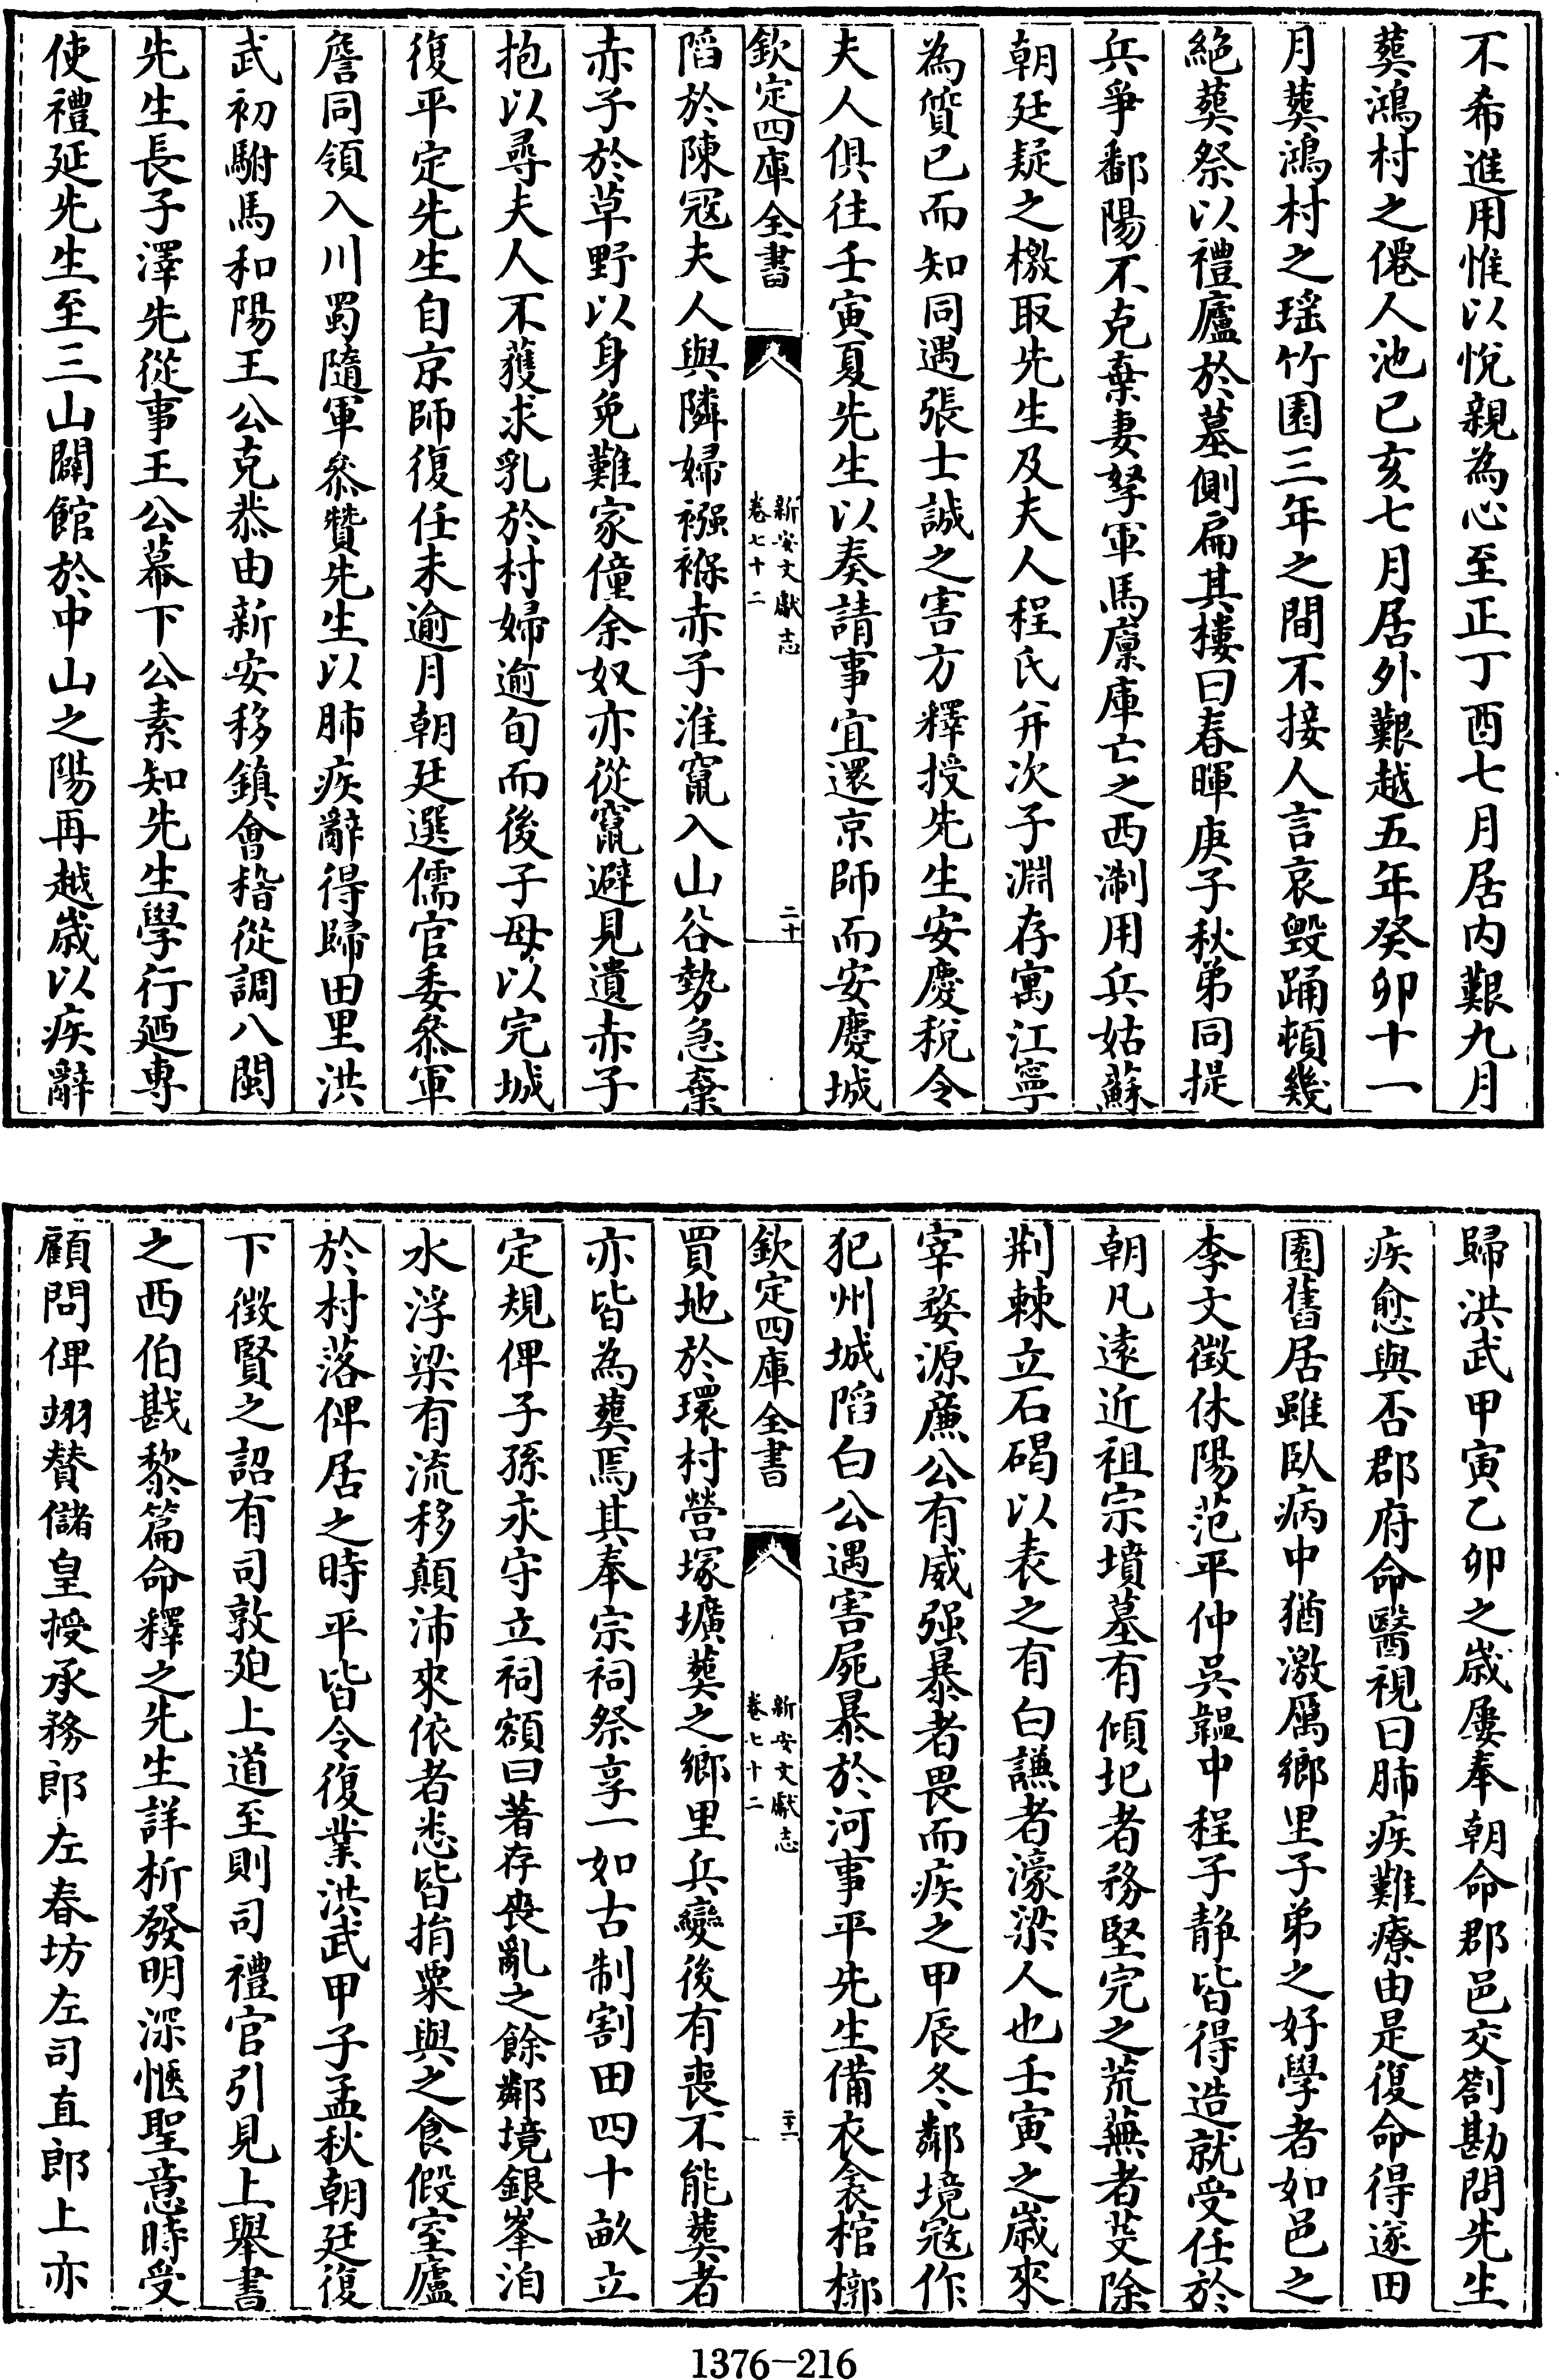 不希進用惟以悅親為心至正丁酉七月居内艱九月
葬鴻村之僊人池已亥七月居外艱越五年癸卯十一
月葬鴻村之瑶竹園三年之間不接人言哀毁踊頓幾
絶葬祭以禮廬於墓側扁其樓曰春暉庚子秋弟同提
兵爭鄱陽不克棄妻孥軍馬廩庫亡之西淛用兵姑蘇
朝廷疑之檄取先生及夫人程氏并次子淵存寓江寧
為質已而知同遇張士誠之害方釋授先生安慶稅令
夫人俱往壬寅夏先生以奏請事宜還京師而安慶城
欽定四庫全書
新安文獻志
卷七十二
二十
陷於陳冦夫人與隣婦襁褓赤子淮竄入山谷勢急棄
赤子於草野以身免難家僮余奴亦從竄避見遺赤子
抱以尋夫人不獲求乳於村婦逾旬而後子母以完城
復平定先生自京師復任未逾月朝廷選儒官委叅軍
詹同領入川蜀隨軍叅贊先生以肺疾辭得歸田里洪
武初駙馬和陽王公克恭由新安移鎮會稽從調八閩
先生長子澤先從事王公幕下公素知先生學行廼專
使禮延先生至三山闢館於中山之陽再越歳以疾辭
歸洪武甲寅乙卯之歳屢奉朝命郡邑交劄勘問先生
疾愈與否郡府命醫視曰肺疾難療由是復命得遂田
園舊居雖臥病中猶激厲鄉里子弟之好學者如邑之
李文徵休陽范平仲吳韞中程子靜皆得造就受任於
朝凡遠近祖宗墳墓有傾圯者務堅完之荒蕪者芟除
荆棘立石碣以表之有白謙者濠梁人也壬寅之歳來
宰婺源廉公有威强暴者畏而疾之甲辰冬鄰境冦作
犯州城陷白公遇害屍暴於河事平先生備衣衾棺槨
欽定四庫全書
新安文獻志
卷七十二
二十一
買地於環村營塚壙葬之鄉里兵變後有喪不能葬者
亦皆為葬焉其奉宗祠祭享一如古制割田四十畝立
定規俾子孫永守立祠額曰著存喪亂之餘鄰境銀峯洎
水浮梁有流移顛沛來依者悉皆捐粟與之食假室廬
於村落俾居之時平皆令復業洪武甲子孟秋朝廷復
下徵賢之詔有司敦廹上道至則司禮官引見上舉書
之西伯戡黎篇命釋之先生詳析發明深愜聖意時受
顧問俾翊賛儲皇授承務郎左春坊左司直郎上亦
1376—216